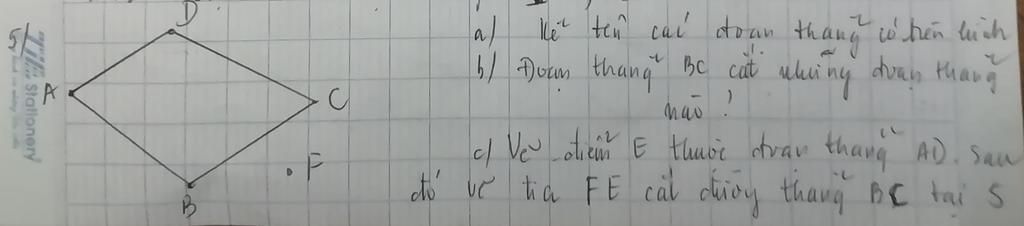 D
A
C
B
F
Stationery
a) Kể tên các đoạn thẳng có trên hình
b) Đoạn thẳng BC cắt những đoạn thẳng
nào?
c) Vẽ điểm E thuộc đoạn thẳng AD. sau
đó vẽ tia FE cắt đường thẳng BC tại S